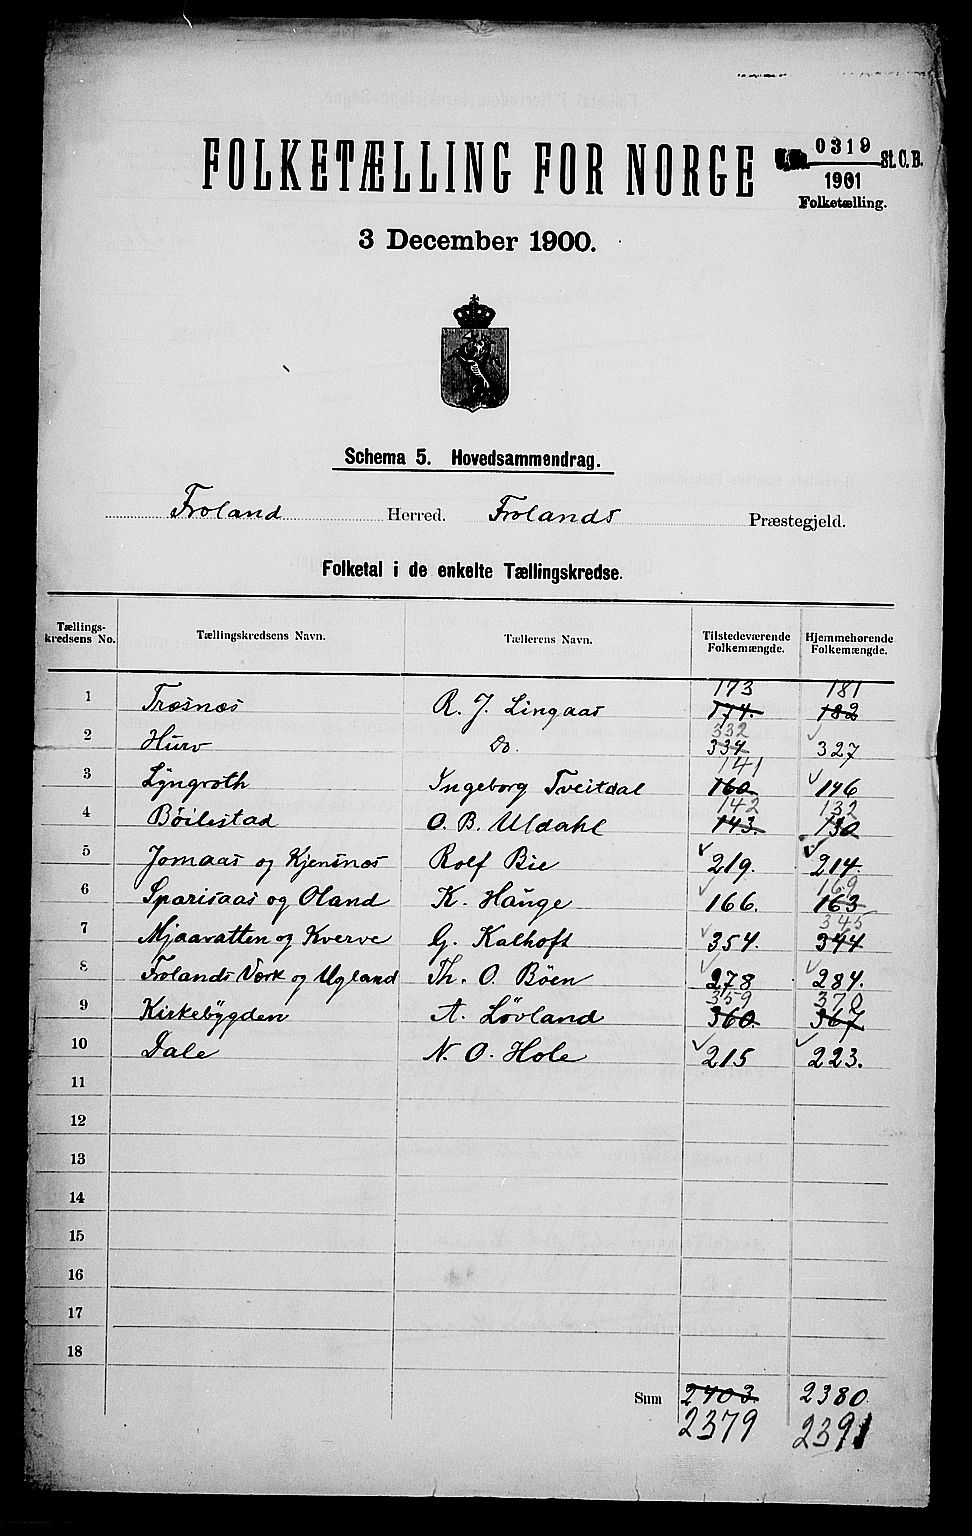 FOLKETÆLLING FOR NORGE
0319 St. C. B.
1901
Folketælling.
3 December 1900.
Schema 5. Hovedsammendrag.
Froland Herred. Frolands Præstegjeld.
Folketal i de enkelte Tællingskredse.
Tællings-kredsens No. Tællingskredsens Navn. Tællerens Navn. Tilstedeværende Folkemængde. Hjemmehørende Folkemængde.
173 181
1 Træsnæs R. J. Lingaas 174. 182
332
2 Hurv Do. 334 327
141
3 Lyngroth Ingeborg Tveitdal 160. 146
142 132
4 Böilestad O. B. Uldahl 143. 130
5 Jomaas og Kjensnæs Rolf Bie 219. 214.
169
6 Sparisaas og Oland K. Hauge 166. 163
345
7 Mjaavatten og Kverve G. Kalhoft 354. 344
8 Frolands Værk og Ugland Th. O. Böen 278 284.
359 370
9 Kirkebygden A. Løvland 360. 367
10 Dale N. O. Hole 215 223.
11
12
13
14
15
16
17
18
Sum 2403 2380
2379 2391